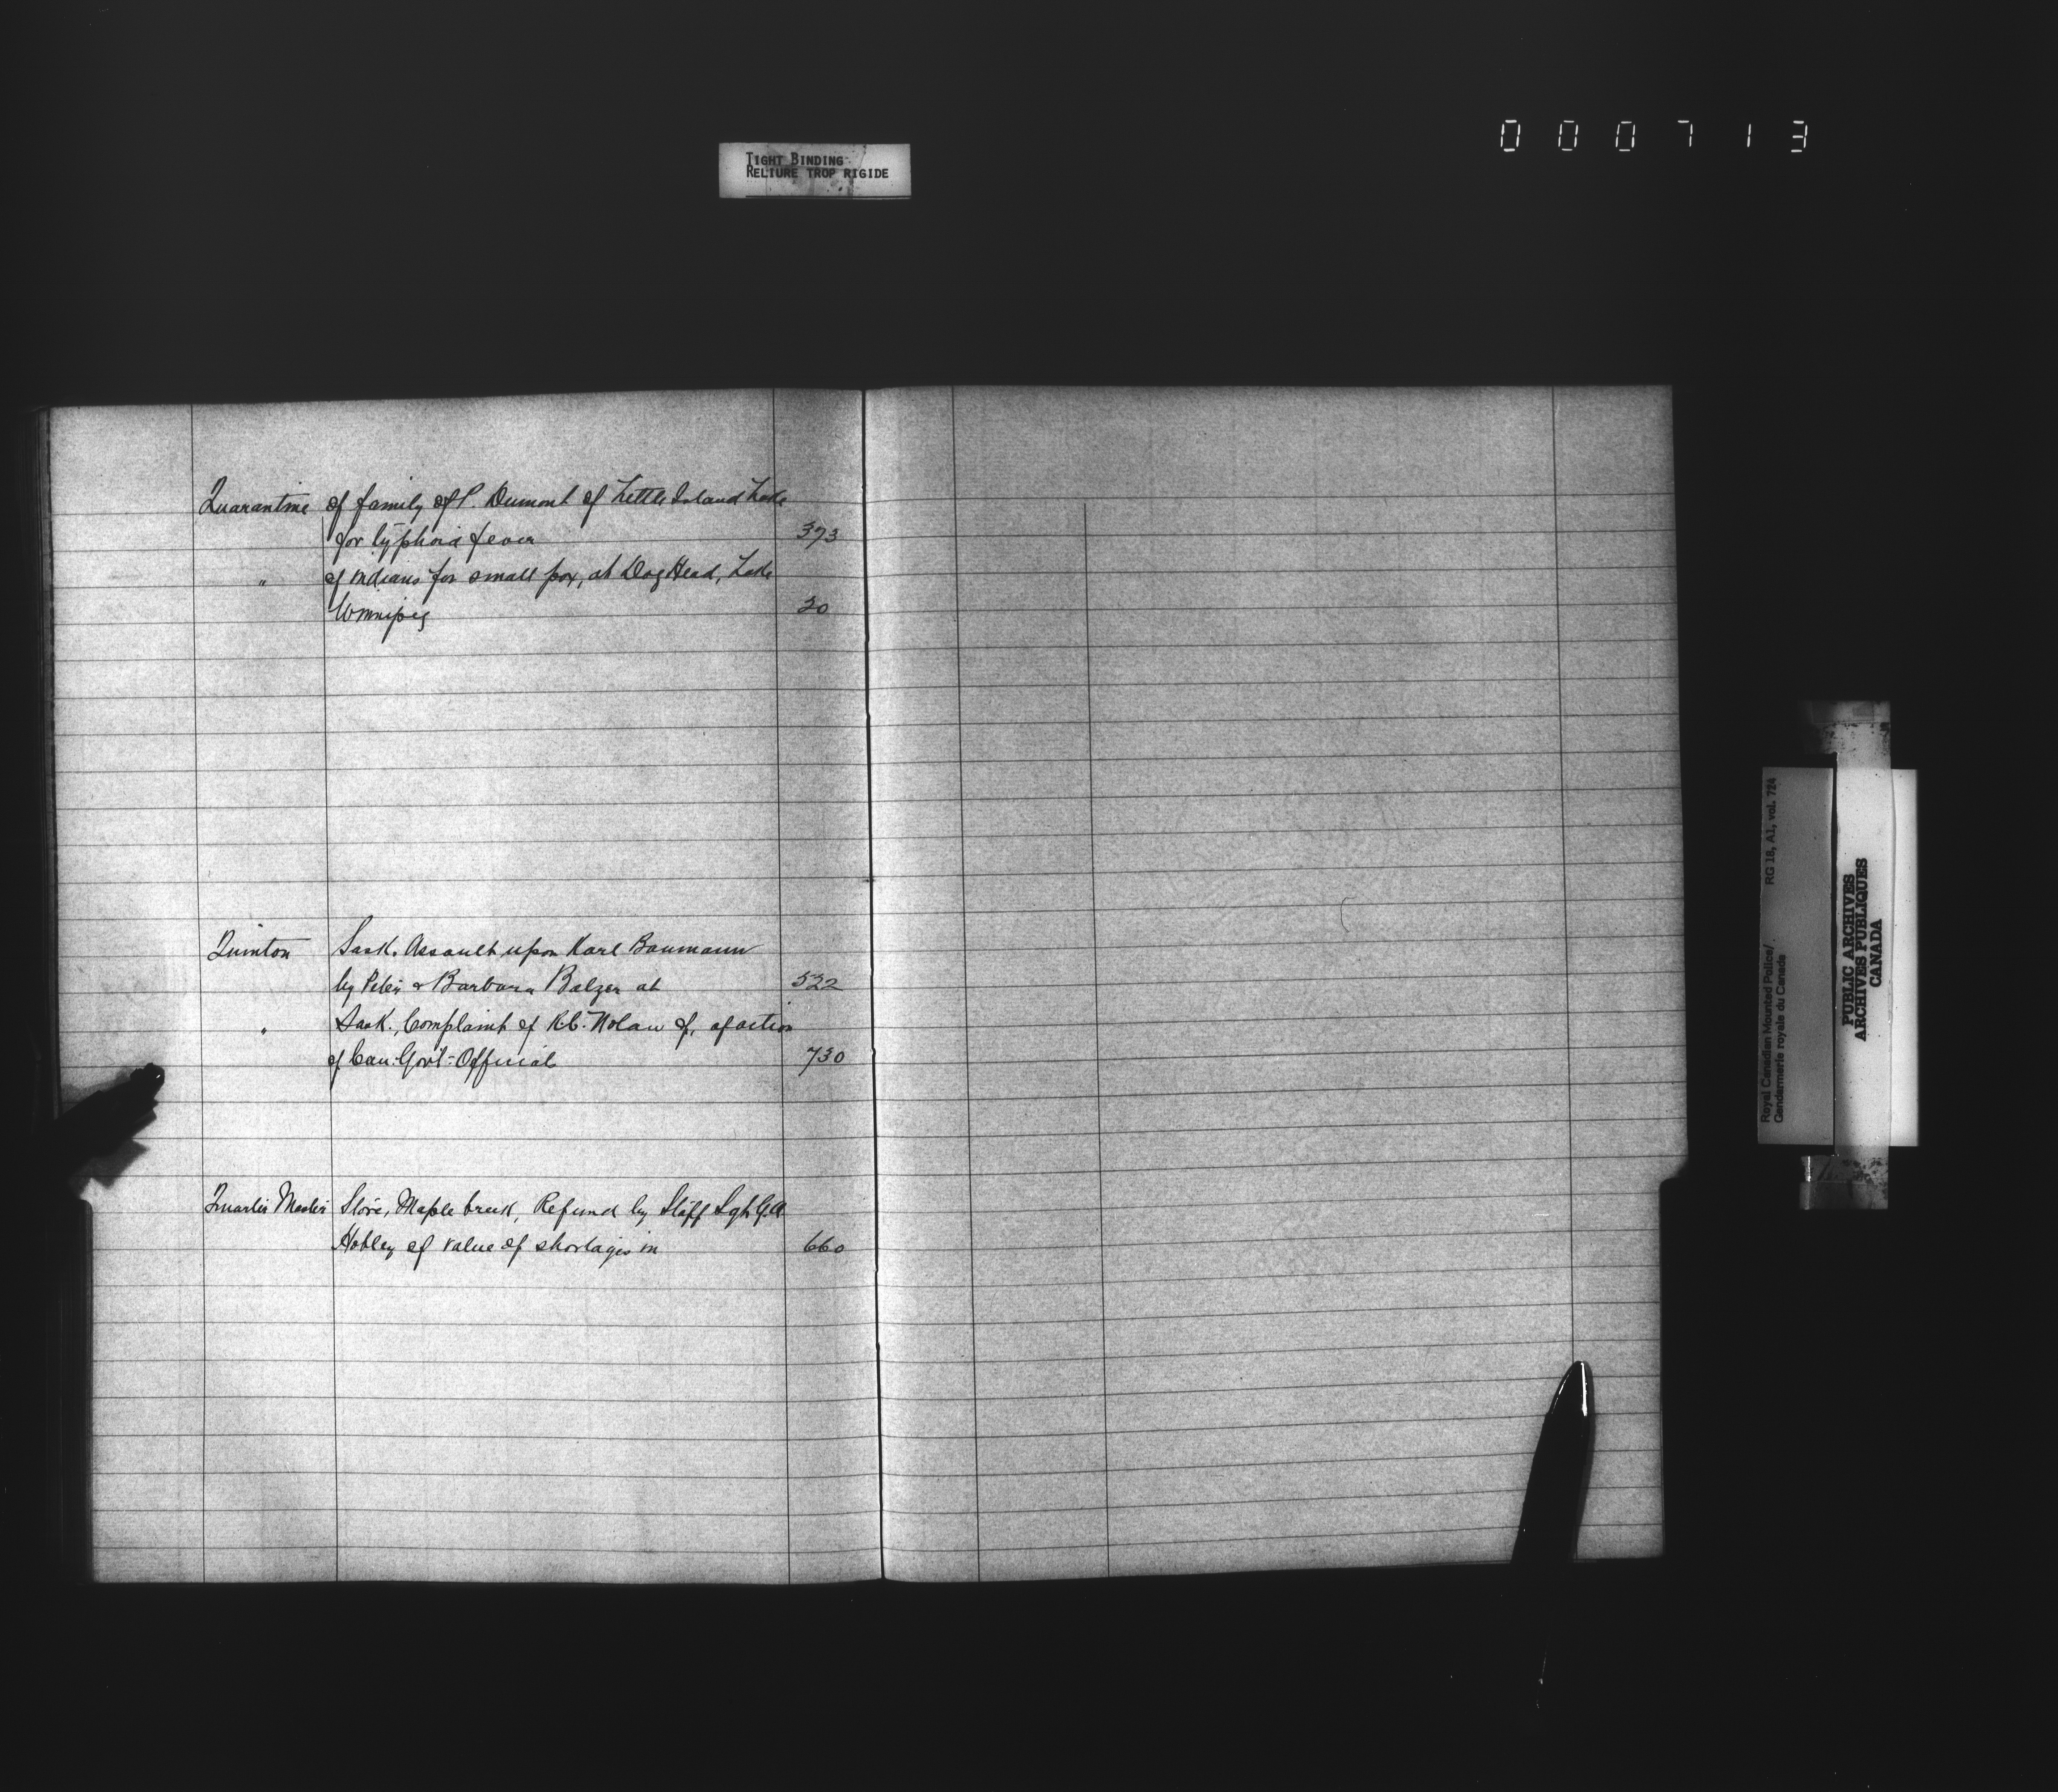 000713
TIGHT BINDING
RELIURE TROP RIGIDE
Quarantine of family of P. Dumont of Little Island Lake
for typhoid fever 393
" of indians for small pox, at Dog Head, Lake
Winnipeg 20
Quinton Sask. Assault upon Karl Baumann
by Peter & Barbara Balzer at 522
" Sask., Complaint of R.C. Nolan of, of action
of Can: Gov't: Official 730
Quarter Master Store, Maple Creek, Refund by Staff Sgt G.A.
Hobley of value of shortages in 660
Royal Canadian Mounted Police/
Gendarmerie royale du Canada
RG 18, A1, vol. 724
PUBLIC ARCHIVES
ARCHIVES PUBLIQUES
CANADA